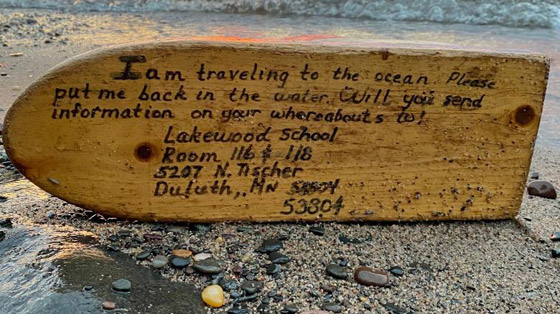 I am traveling to the ocean Please
put me back in the water Will you send
information on your whereabouts to!
Lakewood School
Room 116 & 118
5207 N. Tischer
Duluth, MN 55804
53804